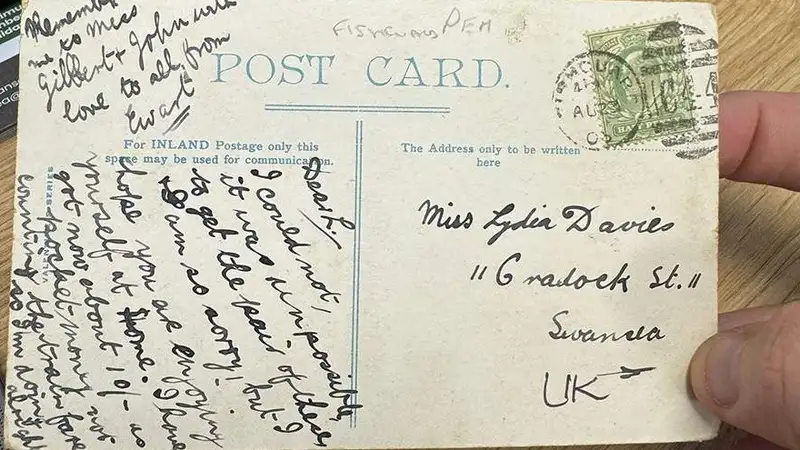 Remember
me to Miss
Gilbert & John with
love to all from
Ewart
FISHGUARD PEM
POST CARD.
AU 23
For INLAND Postage only this
space may be used for communication.
The Address only to be written
here
Dear L,
I could not,
it was impossible,
to get the pair of these
I am so sorry! but I
hope you are enjoying
yourself at home. I have
got now about 10/- as
pocket money not
counting the train fare
so I'm doing
VALENTINES SERIES
Miss Lydia Davies
"Cradock St."
Swansea
UK